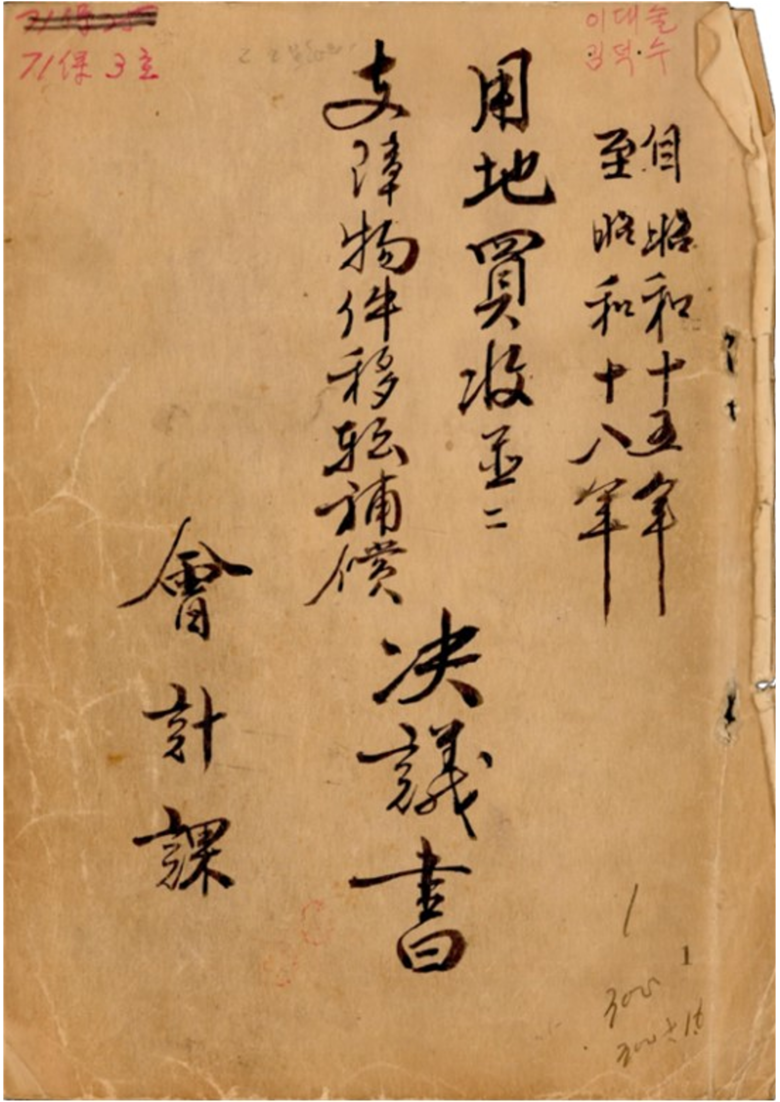 自昭和十五年
至昭和十八年
用地買收並ニ
支障物件移転補償
決議書
會計課
71保 3호
이대술
김덕수
1
1
300